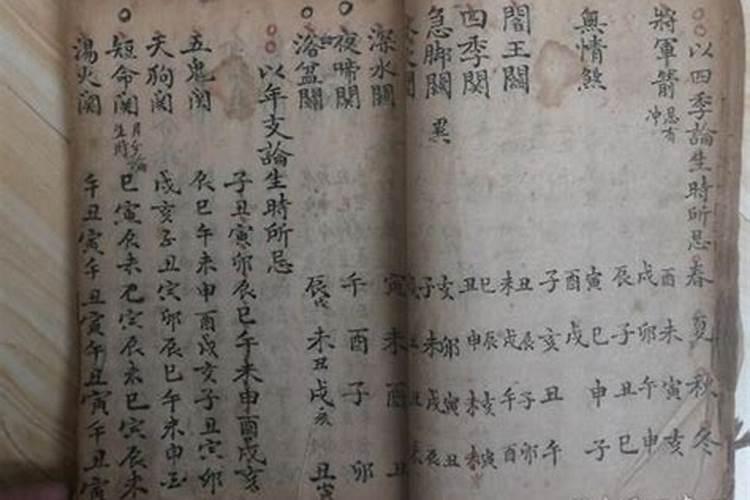 以四季論生時所忌春夏秋冬
將軍箭忌有冲 酉戌辰 未卯子 寅午丑 亥申巳
無情煞 寅酉子 巳戌亥 申 丑 子 午
閻王關 丑未 戌辰 子午 卯酉
四季関 巳丑 辰申 亥未 寅
急脚關 異 亥子 卯未 寅戌 丑辰
深水關 寅 未 酉 丑
夜啼関 午 酉 子 卯
浴盆關 辰 未丑 戌亥 丑寅
以年支論生時所忌
子丑寅卯辰巳午未申酉戌亥
五鬼関 辰巳午未申酉戌亥子丑寅卯
天狗関 戌亥子丑寅卯辰巳午未申酉
短命関 生時 巳寅辰未巳寅辰未巳寅辰未
湯火関 午丑寅午丑寅午丑寅午丑寅